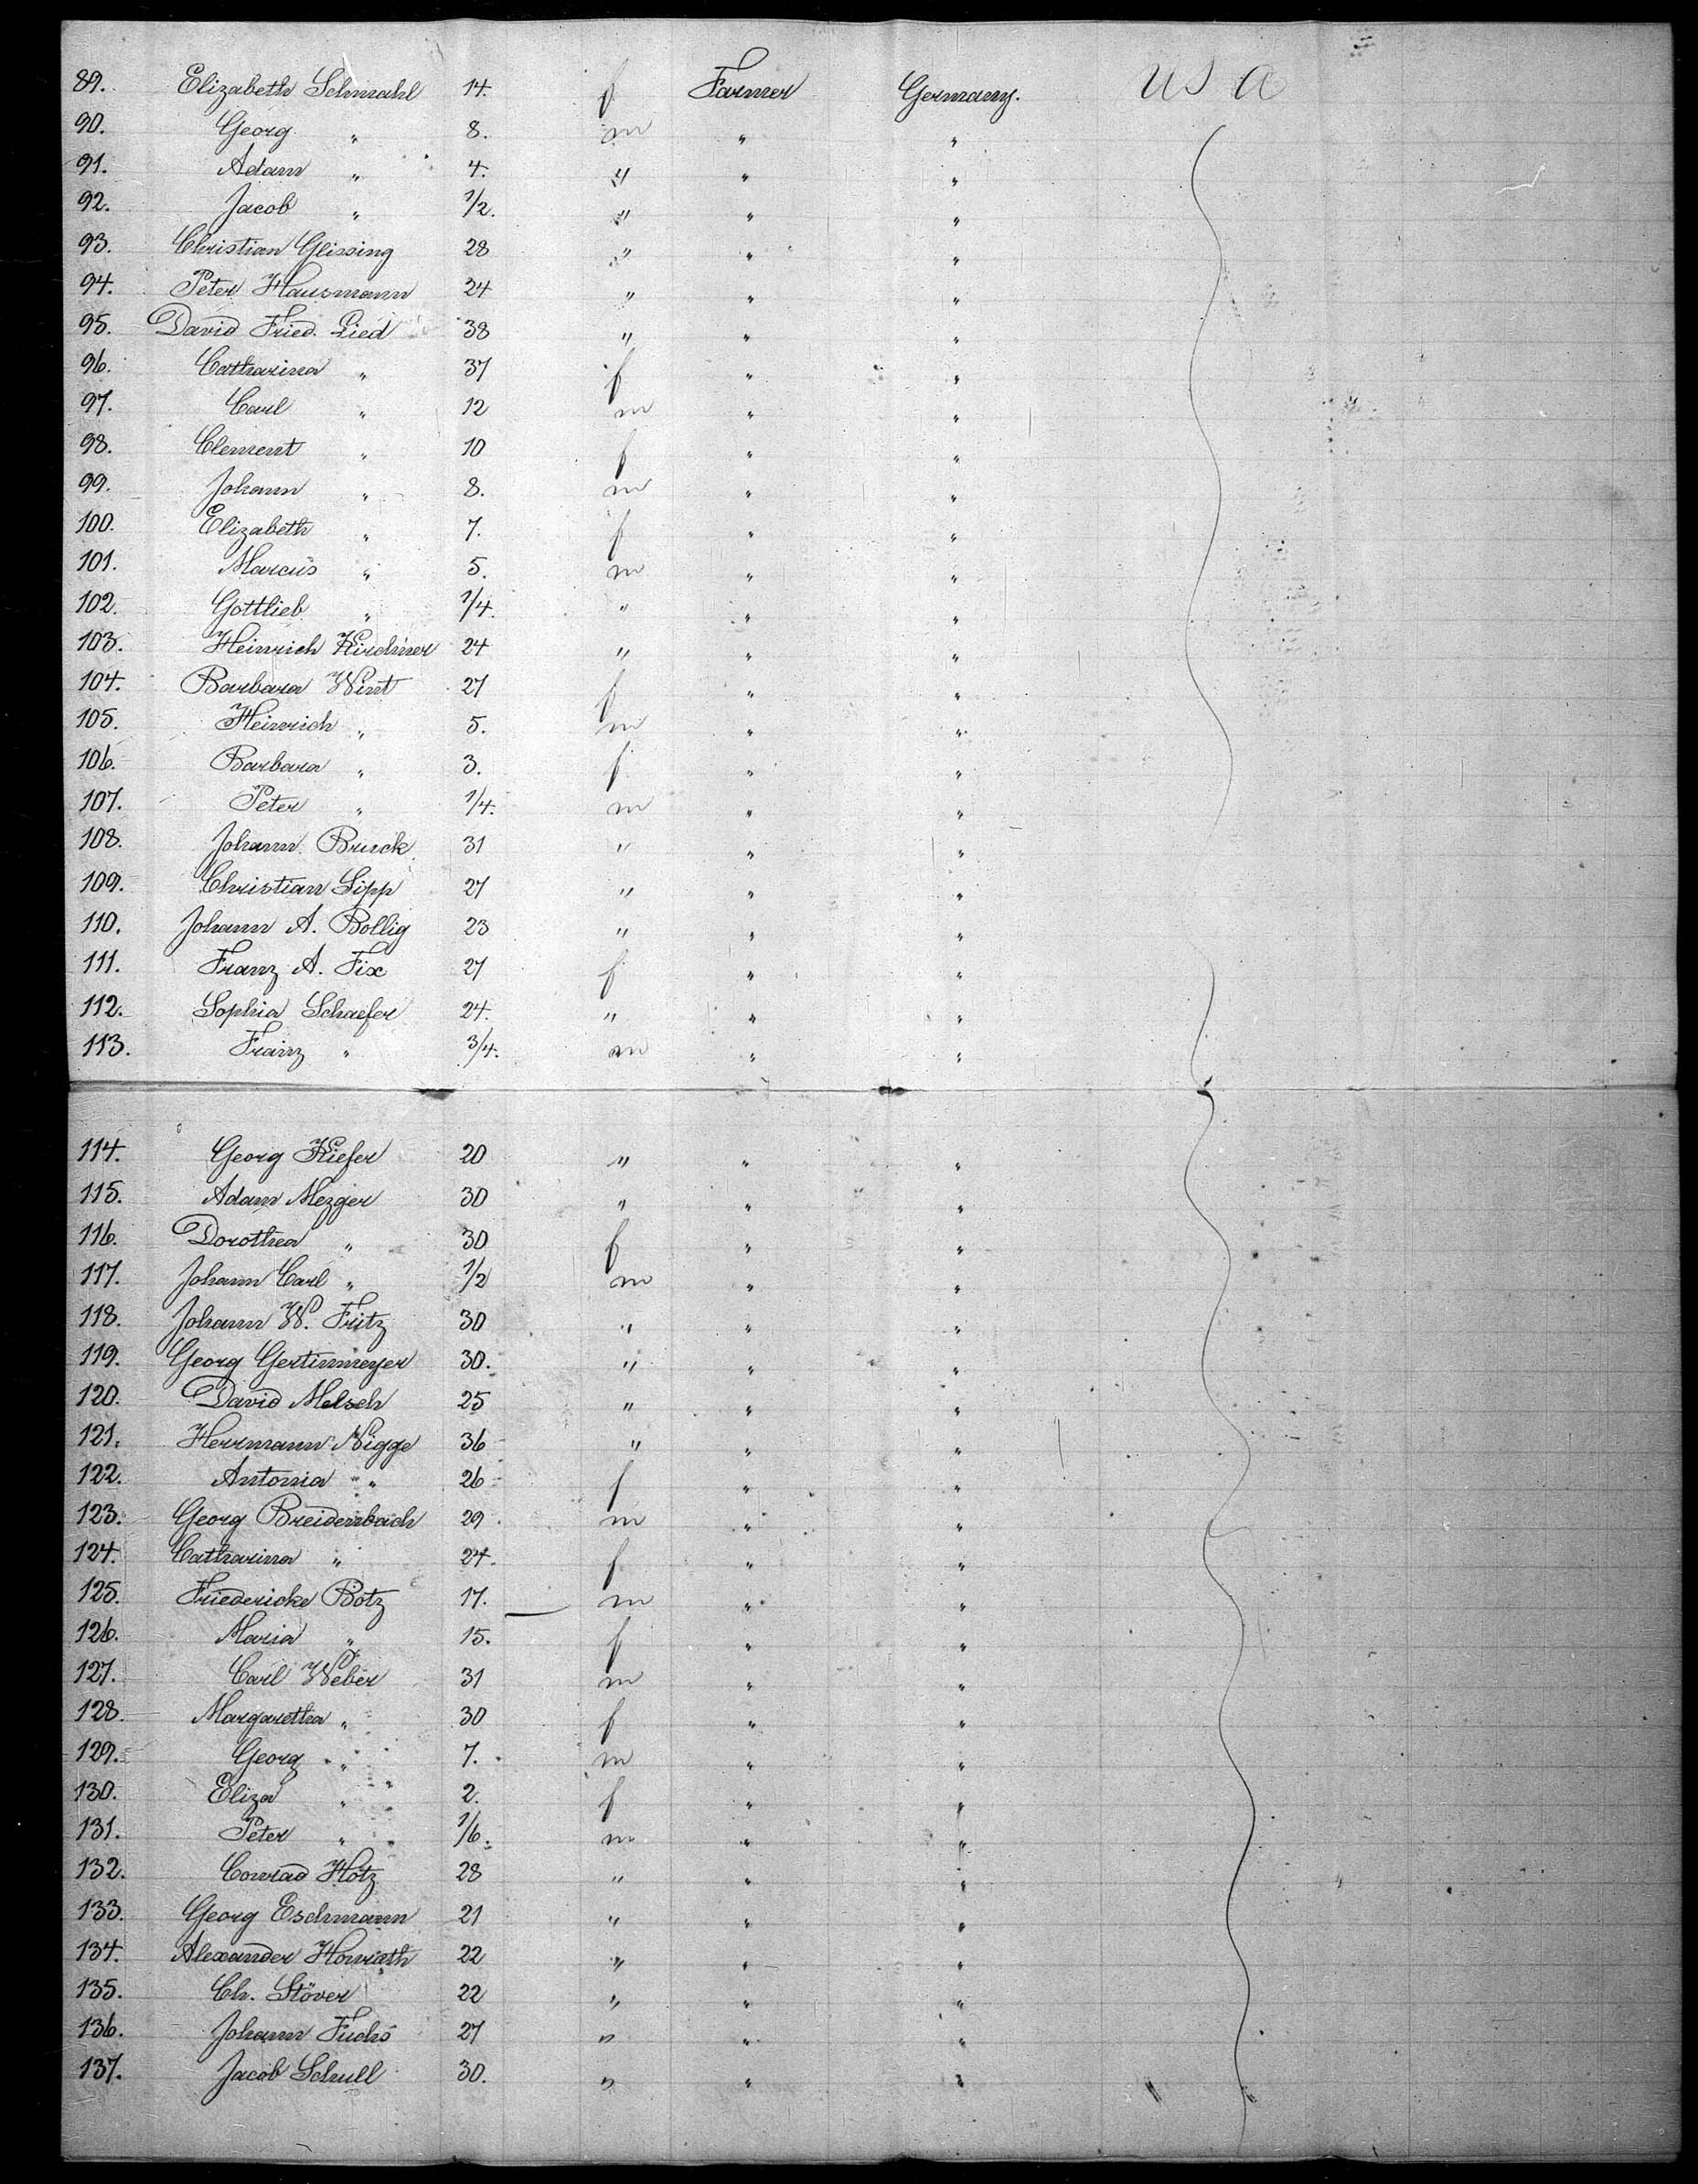 89. Elizabeth Schmahl 14. f Farmer Germany. USA
90. Georg " 8. m " "
91. Adam " 4. " " "
92. Jacob " 1/2. " " "
93. Christian Glissing 28 " " "
94. Peter Hausmann 24 " " "
95. David Fried. Lied 38 " " "
96. Catharina " 37 f " "
97. Carl " 12 m " "
98. Clement " 10 f " "
99. Johann " 8. m " "
100. Elizabeth " 7. f " "
101. Marcus " 5. m " "
102. Gottlieb " 1/4. " " "
103. Heinrich Kirchner 24 " " "
104. Barbara Wint 27 f " "
105. Heinrich " 5. m " "
106. Barbara " 3. f " "
107. Peter " 1/4. m " "
108. Johann Bruck 31 " " "
109. Christian Sipp 27 " " "
110. Johann A. Bollig 23 " " "
111. Franz A. Fix 27 f " "
112. Sophia Schaefer 24. " " "
113. Franz " 3/4. m " "
114. Georg Kiefer 20 " " "
115. Adam Mezger 30 " " "
116. Dorothea " 30 f " "
117. Johann Carl " 1/2 m " "
118. Johann W. Fritz 30 " " "
119. Georg Gertinmeyer 30. " " "
120. David Melsch 25 " " "
121. Herrmann Nigge 36 " " "
122. Antonia " 26 f " "
123. Georg Breidenbach 29 m " "
124. Catharina " 24. f " "
125. Friedericke Botz 17. m " "
126. Maria " 15. f " "
127. Carl Weber 31 m " "
128. Margaretha " 30 f " "
129. Georg " 7. m " "
130. Eliza " 2. f " "
131. Peter " 1/6. m " "
132. Conrad Hotz 28 " " "
133. Georg Eschmann 21 " " "
134. Alexander Howrath 22 " " "
135. Ch. Stöver 22 " " "
136. Johann Fuchs 27 " " "
137. Jacob Schull 30. " " "